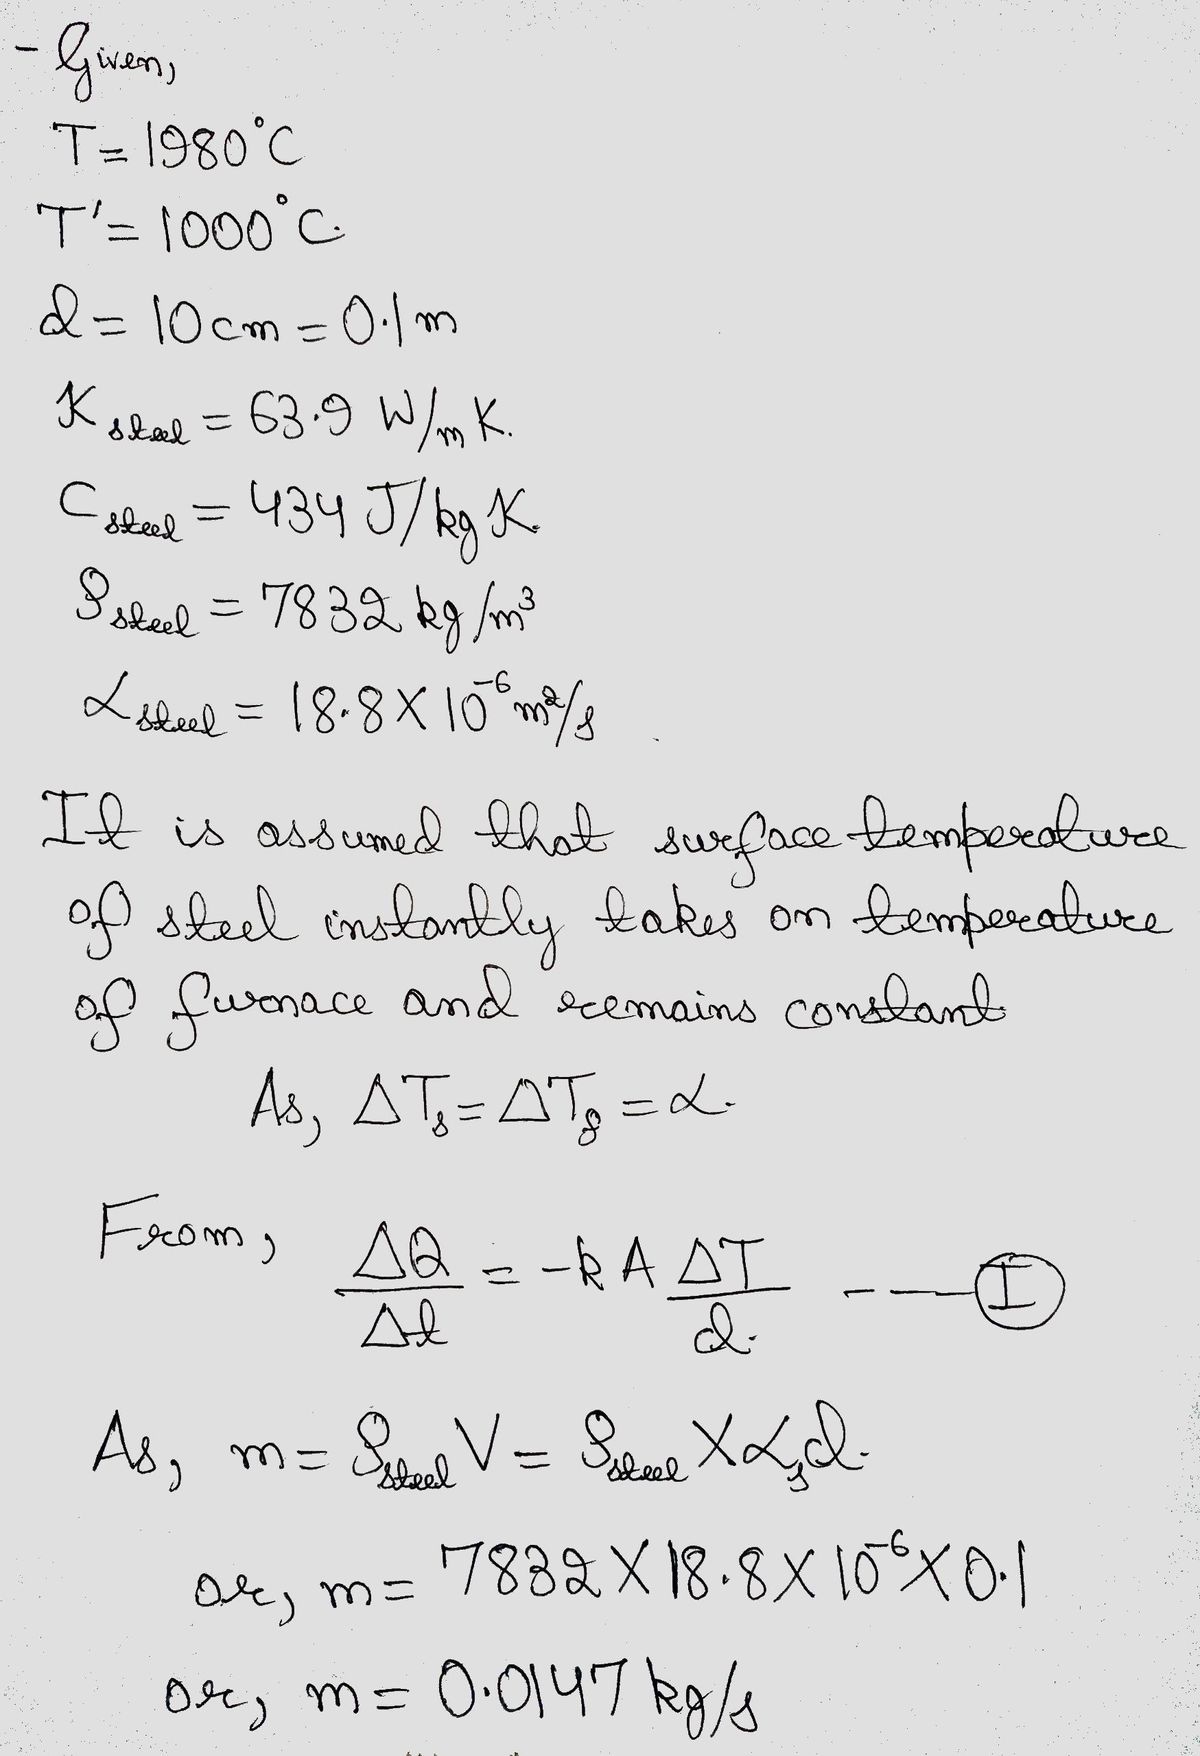 - Given,
T = 1980°C
T' = 1000°C.
d = 10cm = 0.1m
K steel = 63.9 W/m K.
C steel = 434 J/kg K.
ρ steel = 7832 kg/m³
α steel = 18.8 X 10⁻⁶ m²/s
It is assumed that surface temperature
of steel instantly takes on temperature
of furnace and remains constant
As, ΔTs = ΔTf = α.
From, ΔQ/Δt = -k A ΔT/d. --- I
As, m = ρsteel V = ρsteel X αs d.
or, m = 7832 X 18.8 X 10⁻⁶ X 0.1
or, m = 0.0147 kg/s